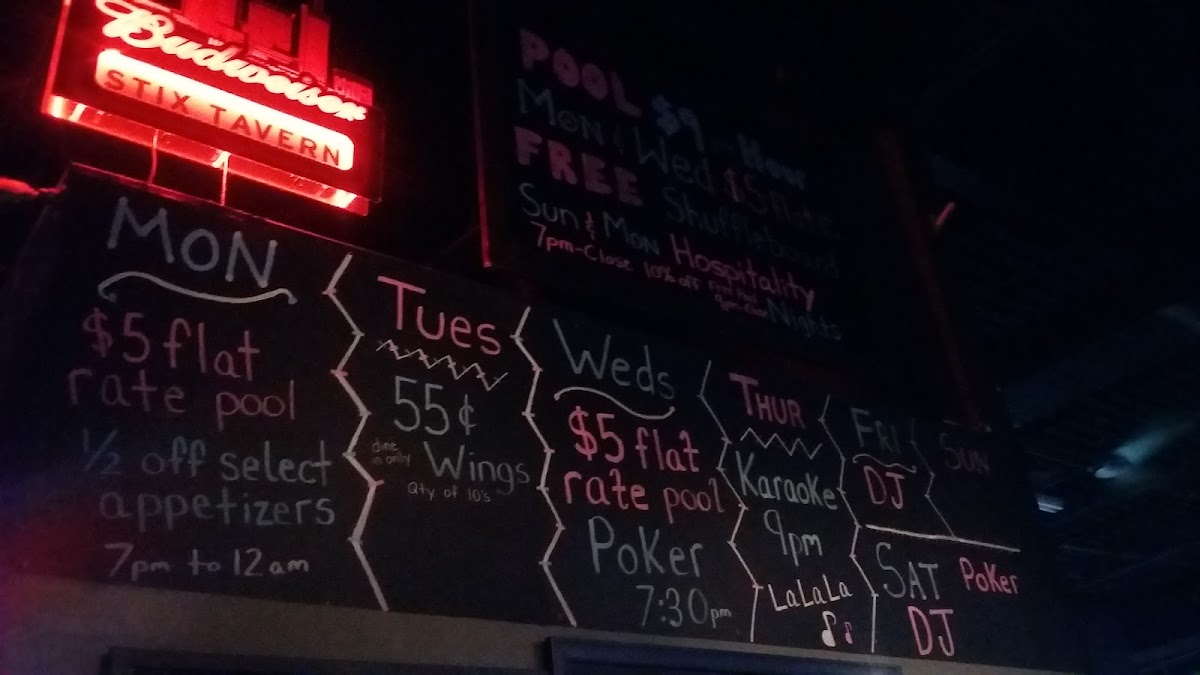 Budweiser
STIX TAVERN
POOL $9 Hour
Mon & Wed $5 flate
FREE Shuffleboard
Sun & Mon Hospitality
7pm-Close 10% off Nights
MON
$5 flat
rate pool
1/2 off select
appetizers
7pm to 12am
Tues
55¢
dine in only
Wings
Qty of 10's
Weds
$5 flat
rate pool
Poker
7:30pm
THUR
Karaoke
9pm
LaLaLa
FRI
DJ
SUN
SAT Poker
DJ